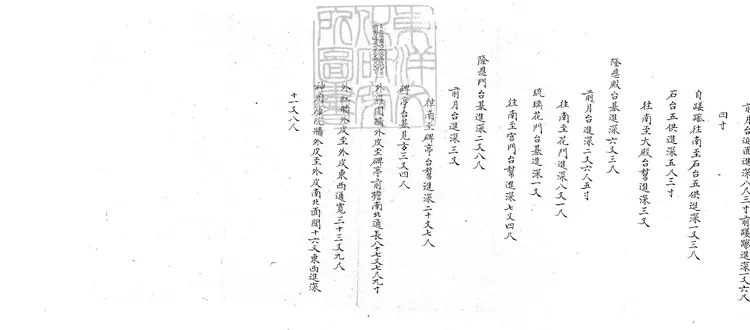 前月台迎面進深八尺三寸前礓䃰進深一丈六尺
四寸
自礓䃰往南至石台五供進深一丈三尺
石台五供進深五尺三寸
往南至大殿台幫進深三丈
隆恩殿台基進深六丈三尺
前月台進深二丈六尺五寸
往南至花門進深八丈一尺
琉璃花門台基進深一丈
往南至宮門台幫進深七丈四尺
隆恩門台基進深二丈八尺
前月台進深三丈
往南至碑亭台幫進深二十丈七尺
碑亭台基見方三丈四尺
外羅圈牆外皮至碑亭前簷南北通長八十七丈七尺九寸
外紅牆外皮至外皮東西通寬三十三丈九尺
神厨庫院牆外皮至外皮南北面闊十六丈東西進深
十一丈八尺